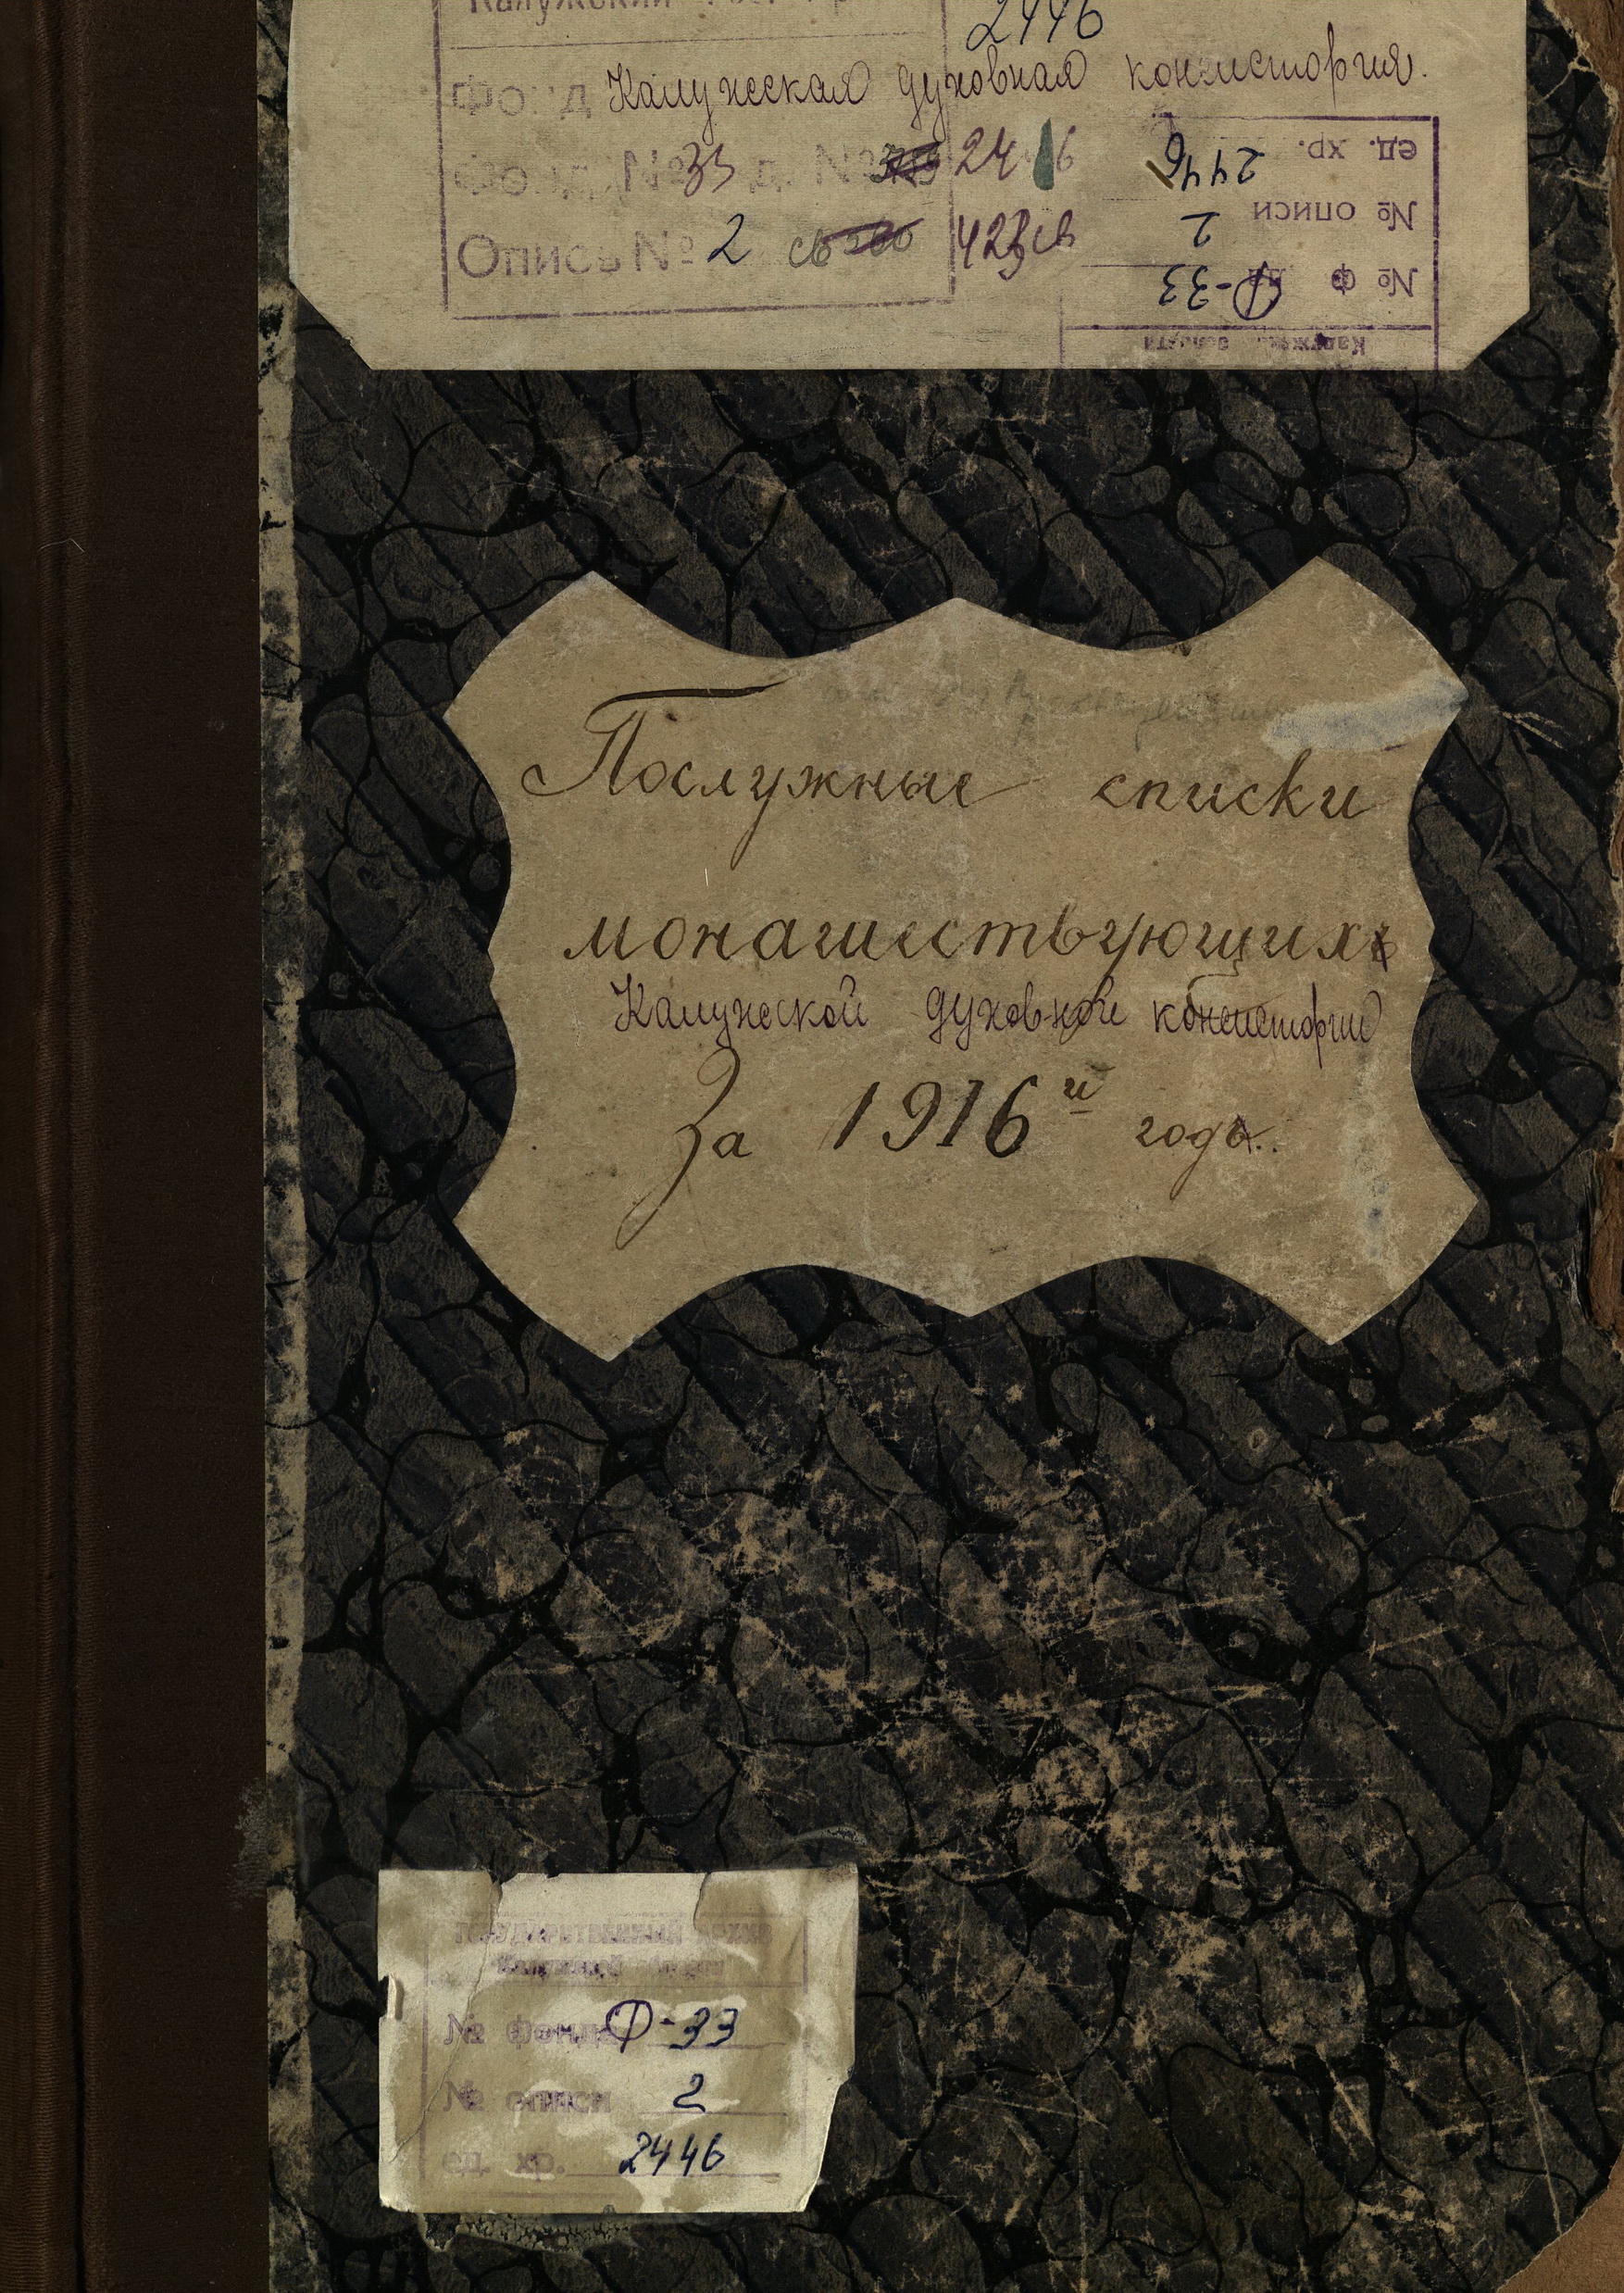 2446
Фонд Калужская духовная консистория.
Фонд № 33 д. № 2446
Опись № 2 св 423 св
ед. хр. 2446
№ описи 2
№ ф Ф-33
Послужные списки
монашествующихъ
Калужской духовной консистории
За 1916й годъ.
ГОСУДАРСТВЕННЫЙ АРХИВ
Калужской области
№ фонда Ф-33
№ описи 2
ед. хр. 2446